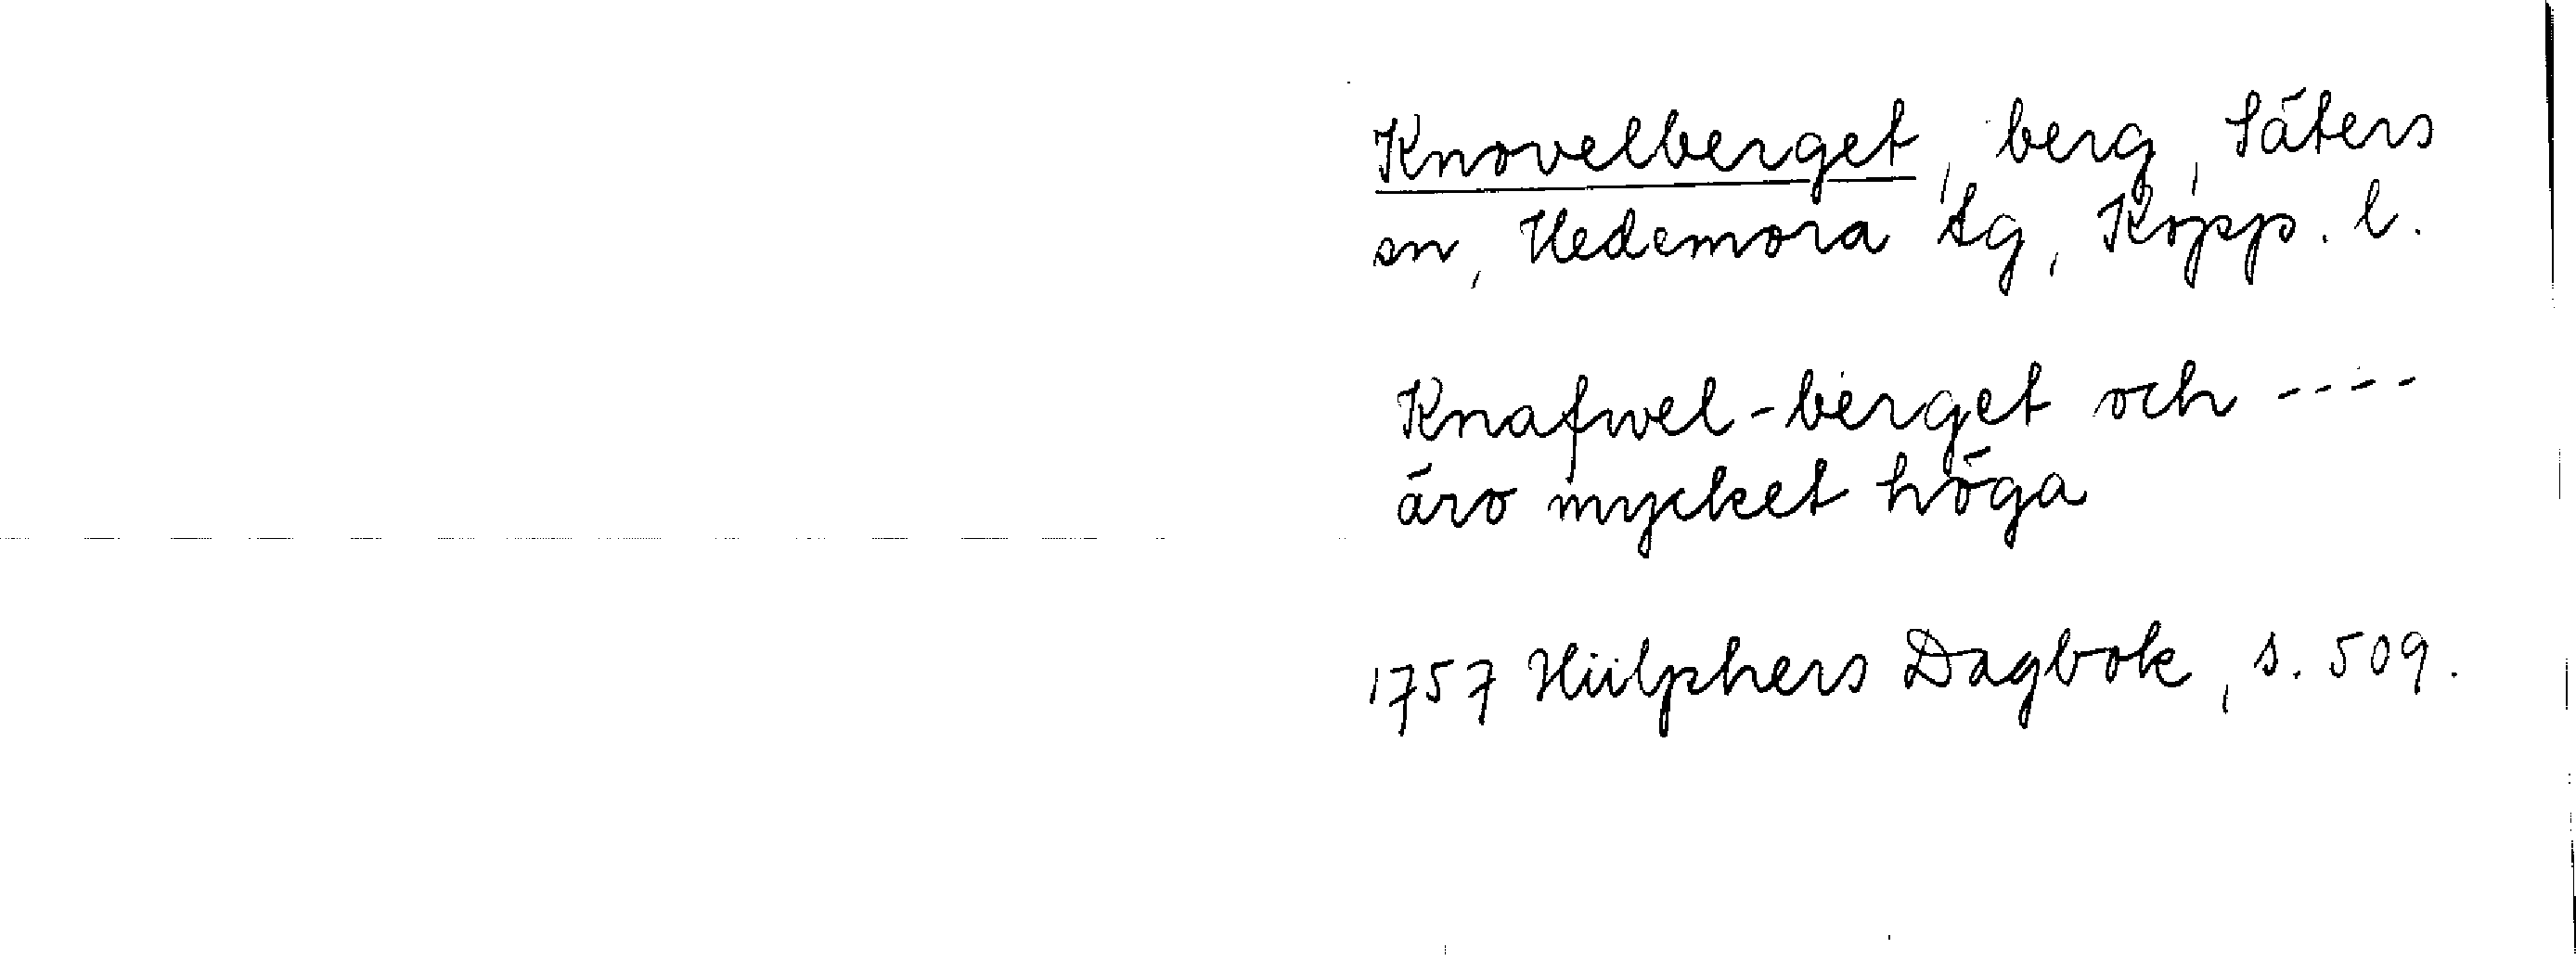 Knovelberget, berg, Säters
sn, Hedemora tg, Kopp. l.
Knafwel-berget och ----
äro mycket höga
1757 Hülphers Dagbok, s. 509.